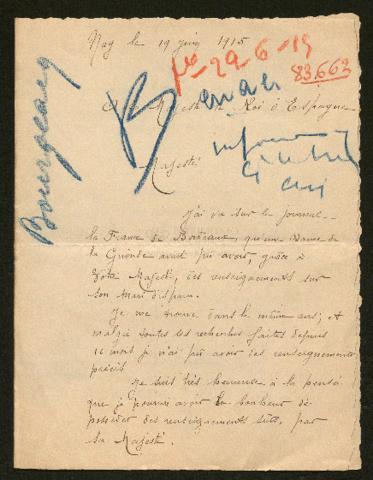 Nay le 19 juin 1915
29-6-15
83.663
A Sa Majesté le Roi d'Espagne
Bourgeaux
Majesté
J'ai vu sur le journal
la France de Bordeaux, qu'une Dame de
la Gironde avait pu avoir, grâce à
Votre Majesté, des renseignements sur
son mari disparu.
Je me trouve dans le même cas, et
malgré toutes les recherches faites depuis
10 mois je n'ai pu avoir des renseignements
précis.
Je suis très heureuse à la pensée
que je pourrai avoir le bonheur de
posséder des renseignements sûrs, par
Sa Majesté.